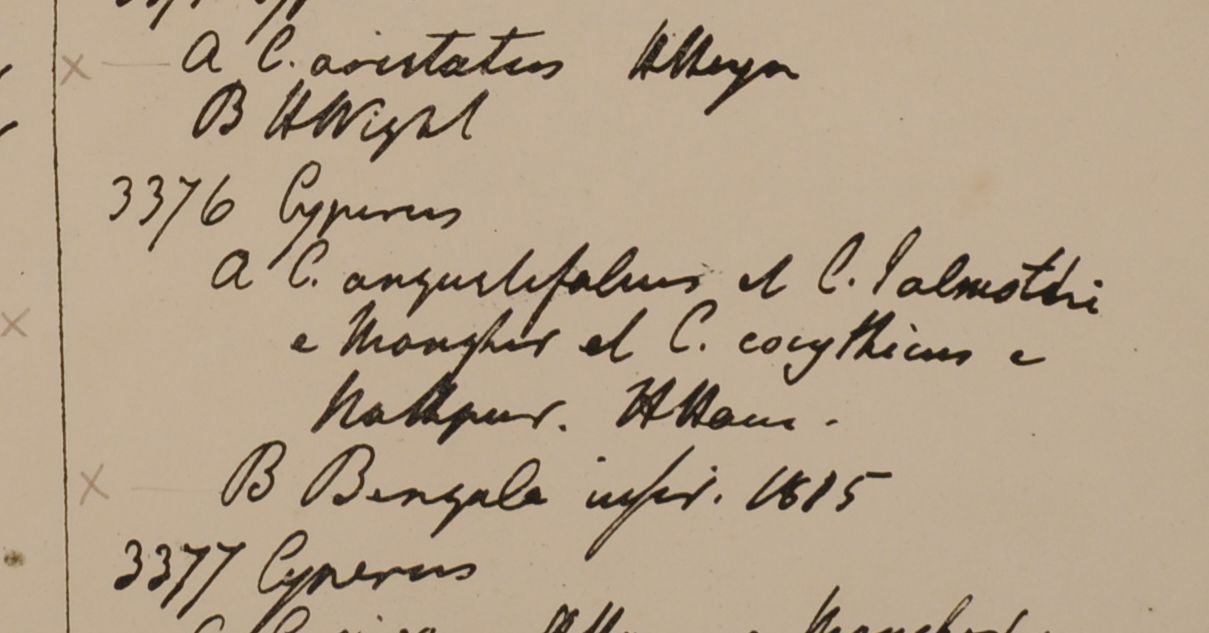 A C. aristatus HHeyn
B HWight
3376 Cyperus
A C. angustifolius et C. Palmothri
e Monghir et C. cocythicus e
Nathpur. HHam.
B Bengala infer. 1815
3377 Cyperus